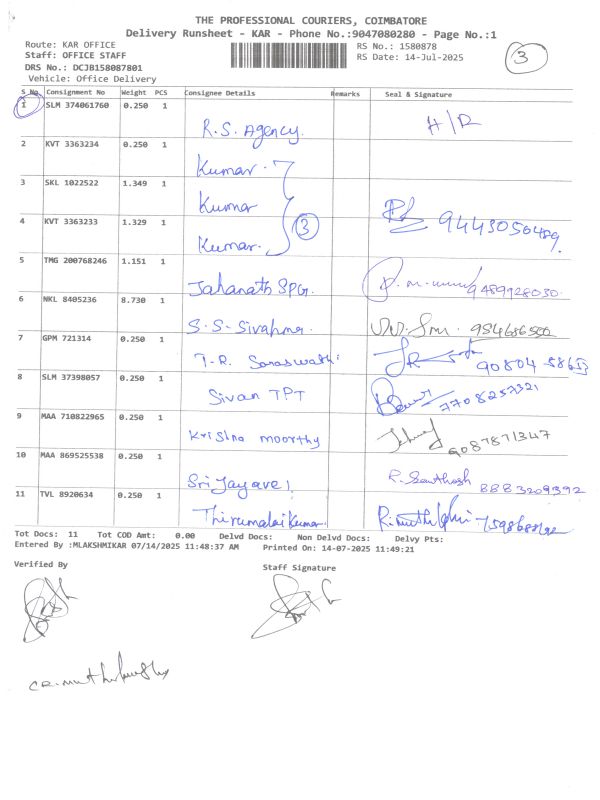 THE PROFESSIONAL COURIERS, COIMBATORE
Delivery Runsheet - KAR - Phone No.:9047080280 - Page No.:1
Route: KAR OFFICE
RS No.: 1580878
Staff: OFFICE STAFF
RS Date: 14-Jul-2025
3
DRS No.: DCJB158087801
Vehicle: Office Delivery
S No. Consignment No Weight PCS Consignee Details Remarks Seal & Signature
1 SLM 374061760 0.250 1
R.S. Agency. H/R
2 KVT 3363234 0.250 1
Kumar.
3 SKL 1022522 1.349 1
Kumar 9443050489.
3
4 KVT 3363233 1.329 1
Kumar.
5 TMG 200768246 1.151 1
Jahanath SPG. 9489928030.
6 NKL 8405236 8.730 1
S.S-Sivahma.
7 GPM 721314 0.250 1
T.R. Saraswathi
8 SLM 37398057 0.250 1
Sivan TPT 7708257321
9 MAA 710822965 0.250 1
Krishna moorthy 9087871347
10 MAA 869525538 0.250 1
Sri Jayavel R. Santhosh 8883209392
11 TVL 8920634 0.250 1
Thirumalai Kumar.
Tot Docs: 11 Tot COD Amt: 0.00 Delvd Docs: Non Delvd Docs: Delvy Pts:
Entered By :MLAKSHMIKAR 07/14/2025 11:48:37 AM Printed On: 14-07-2025 11:49:21
Verified By Staff Signature